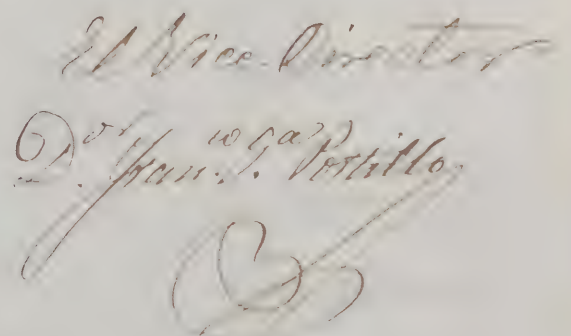 El Vice-Director
D.or Fran.co Portillo